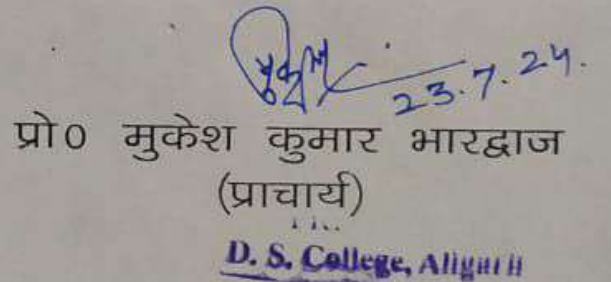 23.7.24.
प्रो० मुकेश कुमार भारद्वाज
(प्राचार्य)
D. S. College, Aligarh